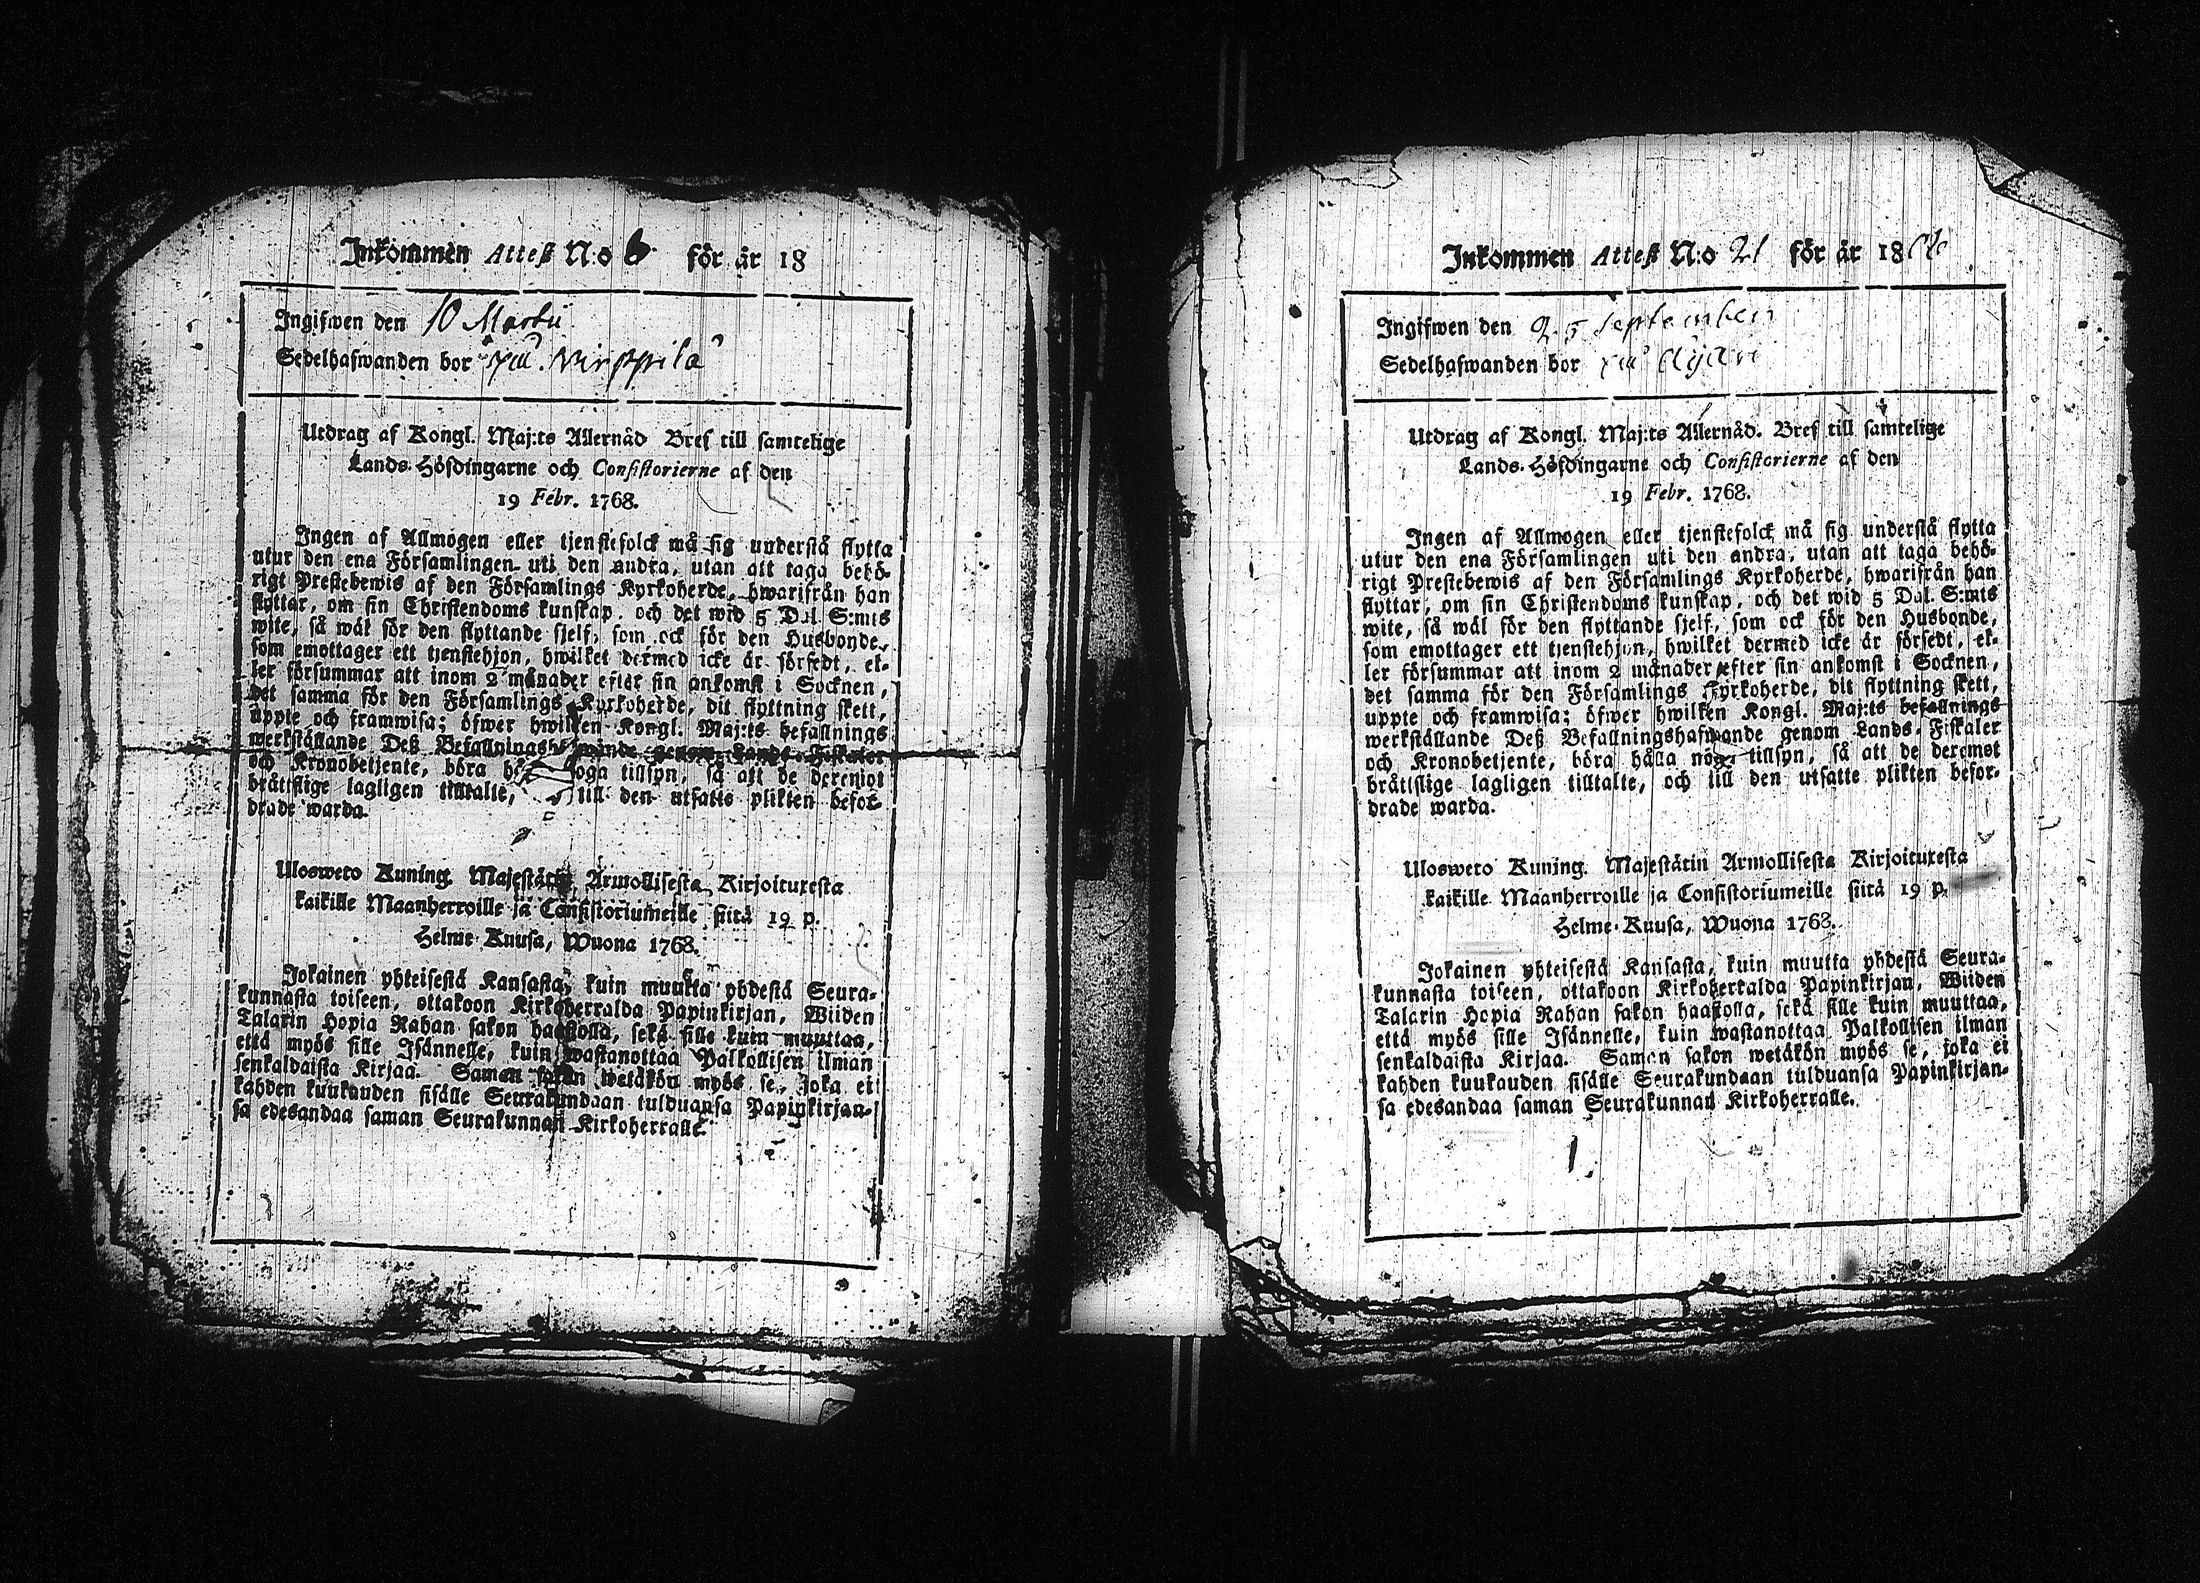 Inkommen Attest N:o 6 för år 18
Ingifwen den 10 Martii
Sedelhafwanden bor på Virppilä
Utdrag af Kongl. Maj:ts Allernåd Bref till samtelige
Lands-Höfdingarne och Consistorierne af den
19 Febr. 1768.
Ingen af Allmogen eller tjenstefolck må sig understå flytta
utur den ena Församlingen uti den andra, utan att taga behö-
rigt Prestebewis af den Församlings Kyrkoherde, hwarifrån han
flyttar, om sin Christendoms kunskap, och det wid 5 Dal. S:mts
wite, så wäl för den flyttande sjelf, som ock för den Husbonde,
som emottager ett tjenstehjon, hwilket dermed icke är försedt, el-
ler försummar att inom 2 månader efter sin ankomst i Socknen,
det samma för den Församlings Kyrkoherde, dit flyttning skett,
uppte och framwisa; öfwer hwilken Kongl. Maj:ts befallnings
werkställande Deß Befallningshafwande genom Lands-Fiskaler
och Kronobetjente, böra noga tillsyn, så att de deremot
bråttslige lagligen tilltalte, till den utsatte plikten befor-
drade warda.
Ulosweto Kuning. Majestätin Armollisesta Kirjoituxesta
kaikille Maanherroille ja Consistoriumeille siitä 19 p.
Helme-Kuusa, Wuona 1768.
Jokainen yhteisestä Kansasta, kuin muutta yhdestä Seura-
kunnasta toiseen, ottakoon Kirkoherralda Papinkirjan, Wiiden
Talarin Hopia Rahan sakon haastolla, sekä sille kuin muuttaa,
että myös sille Isännelle, kuin wastanottaa Palkollisen ilman
senkaldaista Kirjaa. Saman sakon wetäkön myös se, joka ei
kahden kuukauden sisälle Seurakundaan tulduansa Papinkirjan-
sa edesandaa saman Seurakunnan Kirkoherralle.
Inkommen Attest N:o 21 för år 18
Ingifwen den 25 September
Sedelhafwanden bor
Utdrag af Kongl. Maj:ts Allernåd. Bref till samtelige
Lands-Höfdingarne och Consistorierne af den
19 Febr. 1768.
Ingen af Allmogen eller tjenstefolck må sig understå flytta
utur den ena Församlingen uti den andra, utan att taga behö-
rigt Prestebewis af den Församlings Kyrkoherde, hwarifrån han
flyttar, om sin Christendoms kunskap, och det wid 5 Dal. S:mts
wite, så wäl för den flyttande sjelf, som ock för den Husbonde,
som emottager ett tjenstehjon, hwilket dermed icke är försedt, el-
ler försummar att inom 2 månader efter sin ankomst i Socknen,
det samma för den Församlings Kyrkoherde, dit flyttning skett,
uppte och framwisa; öfwer hwilken Kongl. Maj:ts befallnings
werkställande Deß Befallningshafwande genom Lands-Fiskaler
och Kronobetjente, böra hålla noga tillsyn, så att de deremot
bråttslige lagligen tilltalte, och till den utsatte plikten befor-
drade warda.
Ulosweto Kuning. Majestätin Armollisesta Kirjoituxesta
kaikille Maanherroille ja Consistoriumeille siitä 19 p.
Helme-Kuusa, Wuona 1768.
Jokainen yhteisestä Kansasta, kuin muutta yhdestä Seura-
kunnasta toiseen, ottakoon Kirkoherralda Papinkirjan, Wiiden
Talarin Hopia Rahan sakon haastolla, sekä sille kuin muuttaa,
että myös sille Isännelle, kuin wastanottaa Palkollisen ilman
senkaldaista Kirjaa. Saman sakon wetäkön myös se, joka ei
kahden kuukauden sisälle Seurakundaan tulduansa Papinkirjan-
sa edesandaa saman Seurakunnan Kirkoherralle.